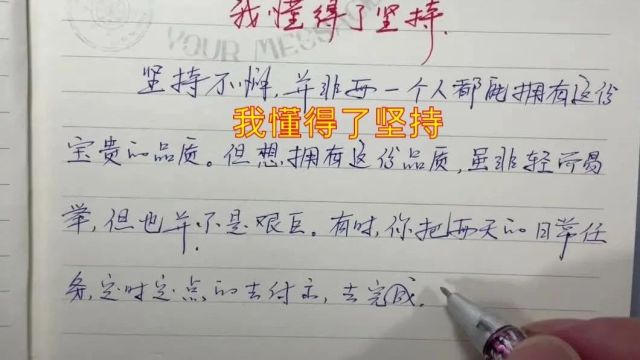 我懂得了坚持.
YOUR MESSAGE
坚持不懈,并非每一个人都能拥有这份
我懂得了坚持
宝贵的品质。但想拥有这份品质,虽非轻而易
举,但也并不是艰巨。有时,你把每天的日常任
务,定时定点的去付出,去完成.